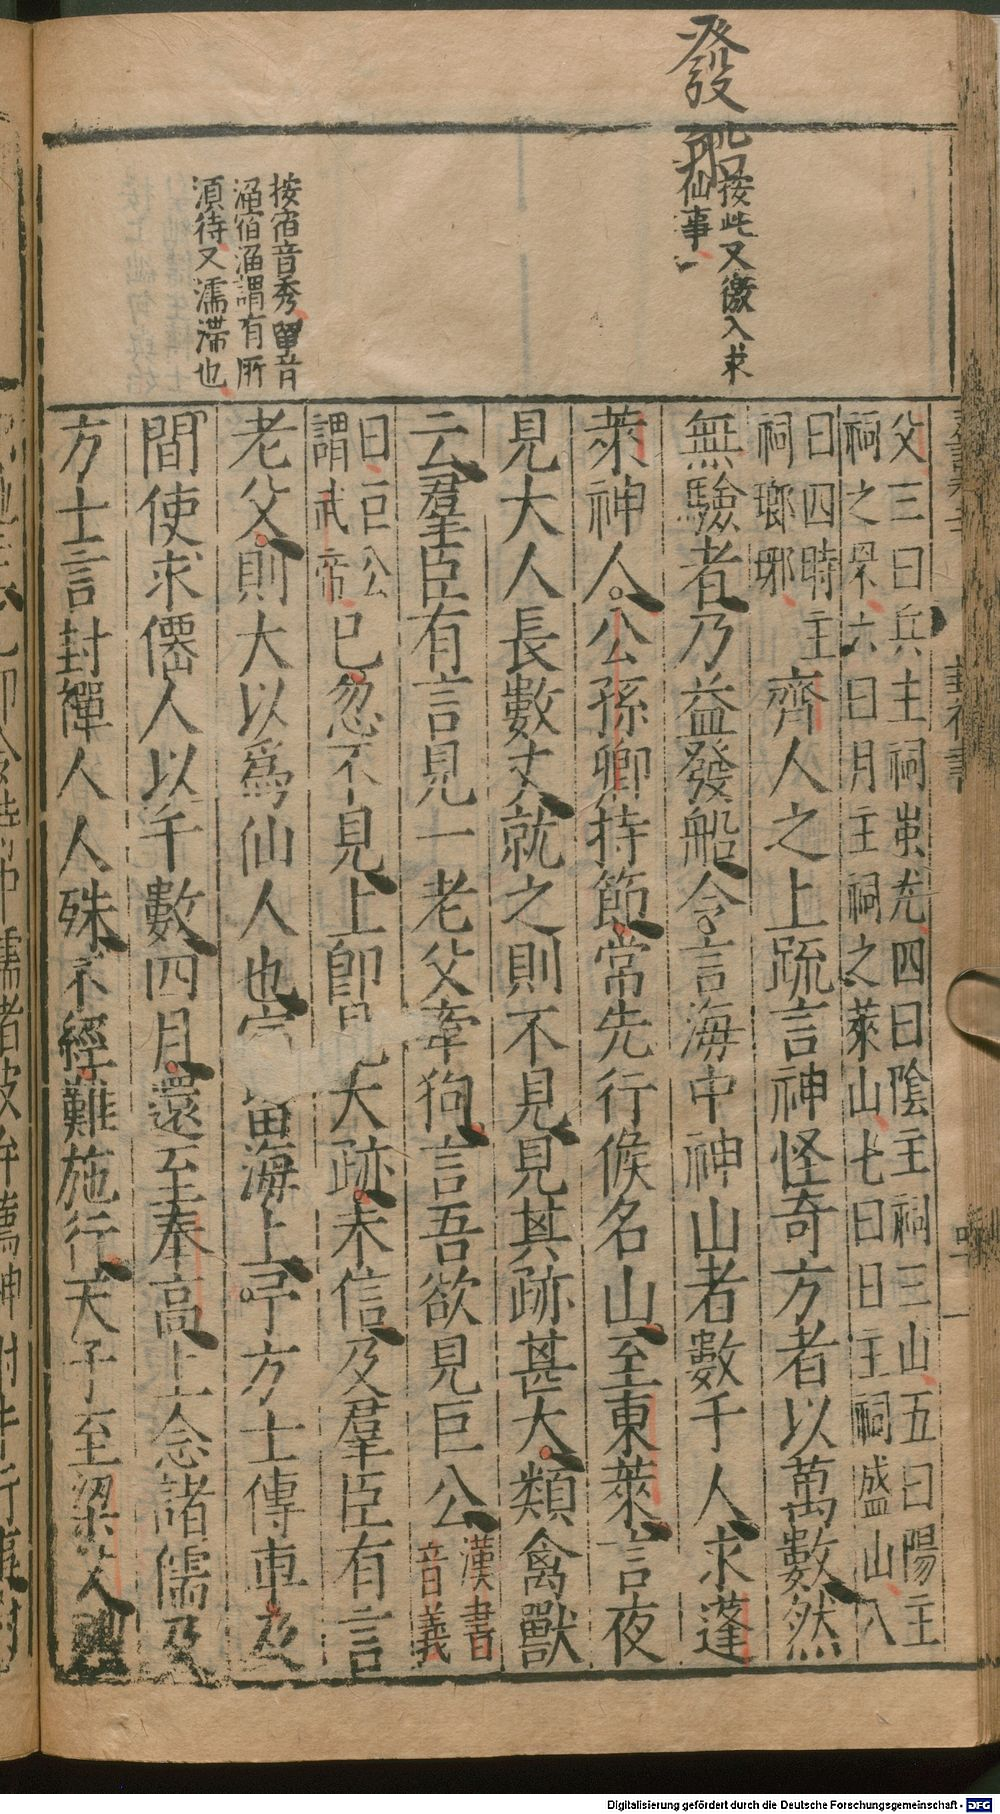 發船
按此又繳入求
仙事
按宿音秀畱音
溜宿溜謂有所
須待又濡滯也
父三曰兵主祠蚩尤四曰陰主祠三山五曰陽主
祠之罘六曰月主祠之萊山七曰日主祠盛山八
曰四時主
祠瑯琊
齊人之上疏言神怪奇方者以萬數然
無驗者乃益發船令言海中神山者數千人求蓬
萊神人公孫卿持節常先行候名山至東萊言夜
見大人長數丈就之則不見見其跡甚大類禽獸
云羣臣有言見一老父牽狗言吾欲見巨公
漢書
音義
曰巨公
謂武帝
已忽不見上卽見大跡未信及羣臣有言
老父則大以爲仙人也宿畱海上予方士傳車乃
間使求僊人以千數四月還至奉高上念諸儒及
方士言封禪人人殊不經難施行天子至梁父
Digitalisierung gefördert durch die Deutsche Forschungsgemeinschaft - DFG